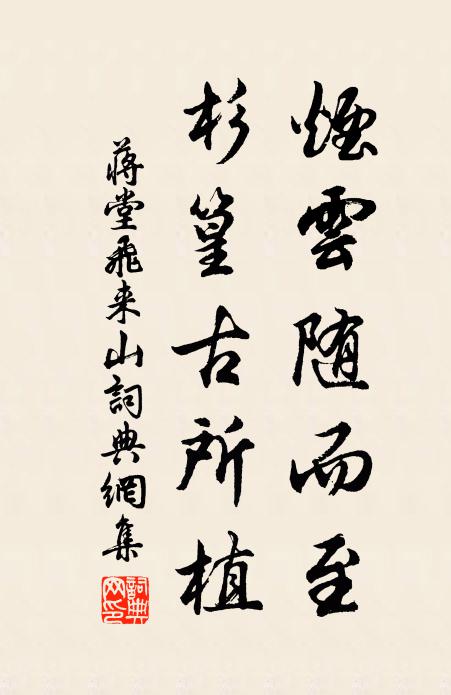 煙雲随而至
杉篁古所植
蔣堂飛来山詞典網集
詞典网印